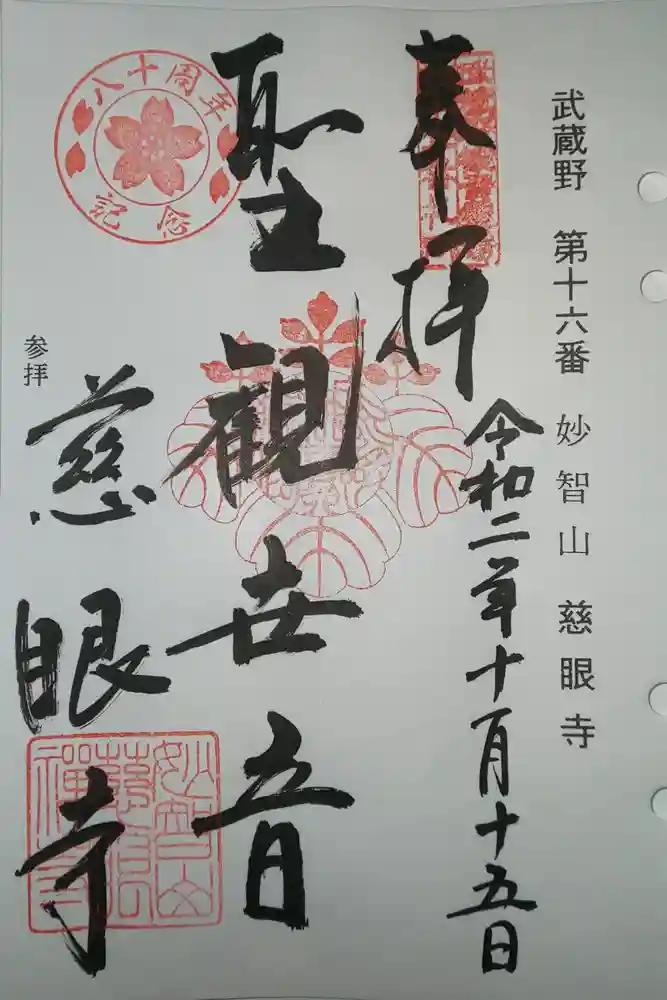 武蔵野 第十六番 妙智山 慈眼寺
奉拝
令和二年十月十五日
聖観世音
慈眼寺
参拝
八十周年
記念
妙智山
慈眼
禅寺